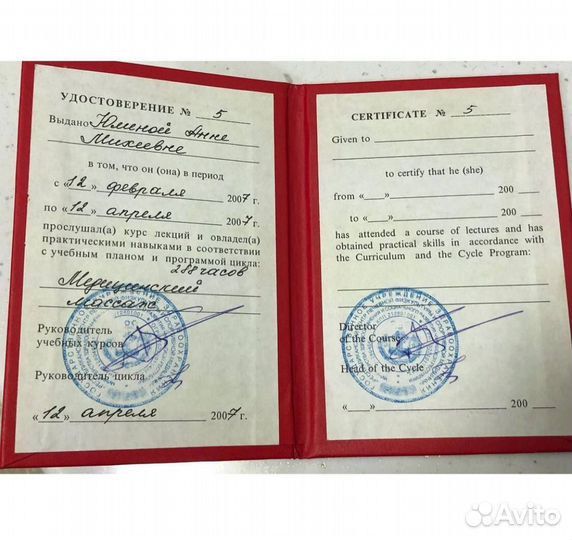 УДОСТОВЕРЕНИЕ № 5
Выдано Юминой Анне
Михеевне
в том, что он (она) в период
с «12» февраля 2007 г.
по «12» апреля 2007 г.
прослушал(а) курс лекций и овладел(а)
практическими навыками в соответствии
с учебным планом и программой цикла:
288 часов
Медицинский
Массаж
Руководитель
учебных курсов
Руководитель цикла
«12» апреля 2007 г.
CERTIFICATE № 5
Given to
to certify that he (she)
from «__» 200
to «__» 200
has attended a course of lectures and has
obtained practical skills in accordance with
the Curriculum and the Cycle Program:
Director
of the Course
Head of the Cycle
«__» 200
ГОСУДАРСТВЕННОЕ УЧРЕЖДЕНИЕ ЗДРАВООХРАНЕНИЯ
Avito